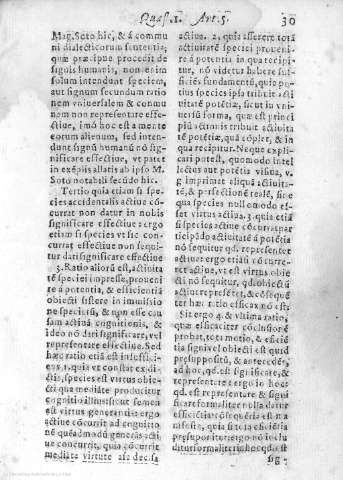 Quæst. 1. Art. 5. 30
Mag. Soto hic, & à commu
ni dialecticorum sententia,
quæ præ ipue procedit de
signis humanis, non enim
solum intendunt speciem,
aut signum secundum ratio
nem vniuersalem & commu
nem non representare effe
ctiue, imò hoc est a mente
eorum alienum, sed inten
dunt signũ humanũ nõ sig
nificare effectiue, vt patet
in exẽplis allatis ab ipso M.
Soto notabili secũdo hic.
Tertio quia etiam si spe
cies accidentalis actiue cõ
currat non datur in nobis
significare effectiue: ergo
etiam si species vt sic con-
currat effectiue non sequi
tur dari significare effectiue
3. Ratio aliorũ est, actiuita
tẽ speciei impressæ, proueni
re à potentia, & efficientiã
obiecti sistere in immissio
ne specierũ, & non esse cau
sam actiuã cognitionis, &
ideo nõ dari significare, vel
representare effectiue. Sed
hæc ratio etiã est insuffici-
ens 1. quia vt constat ex di-
ctis, species est virtus obie-
cti qua mediãte producitur
cognitio illiusficut semen
est virtus generantis: ergo
actiue cõcurrit ad cognitio
nẽ quẽadmodũ generãs acti
ue concurrit, quia cõcurrit
mediante virtute
actiua. 2. quia asserere totã
actiuitatẽ speciei proueni-
re à potentia in qua recipi-
tur, nõ videtur habere suffi
ciẽs fundamẽtũ, quin poti-
us species ipsa tribuit acti
uitatẽ potẽtiæ, sicut in vni-
uersũ forma, quæ est princi
piũ actionis tribuit actiuita
tẽ potẽtiæ, quã cõplet, & in
qua recipitur. Neque expli
cari potest, quomodo intel
lectus aut potẽtia visiua, v.
g imprimat aliquã actiuita-
tẽ, & perfectionẽ reali, sine
qua species nullomodo es-
set virtus actiua. 3. quia etiã
si species actiue cõcurrat par
ticipãdo actiuitatẽ à potẽtia
nõ sequitur qd. representa-
ret actiue ergo etiã si cõcurre-
ret actiue, vt est virtus obie
cti nõ sequitur, qd. obiectũ
actiue represẽtet, & cõsequẽ
ter hæc ratio efficax nõ est.
Sit ergo 4. & vltima ratio,
quæ efficaciter cõclusionẽ
probat, tota motio, & efficiẽ
tia signi vel obiecti est quid
presuppositũ, & antecedẽs,
ad hoc, qd. est significare, &
representare: ergo in hoc
qd. est representare & signi
ficare formaliter non datur
efficiẽtia: cõsequẽtia est ma
nifesta, quia si tota efficiẽtia
presupponitur ergo nõ inclu
ditur formaliter in hoc qd. est
sig-